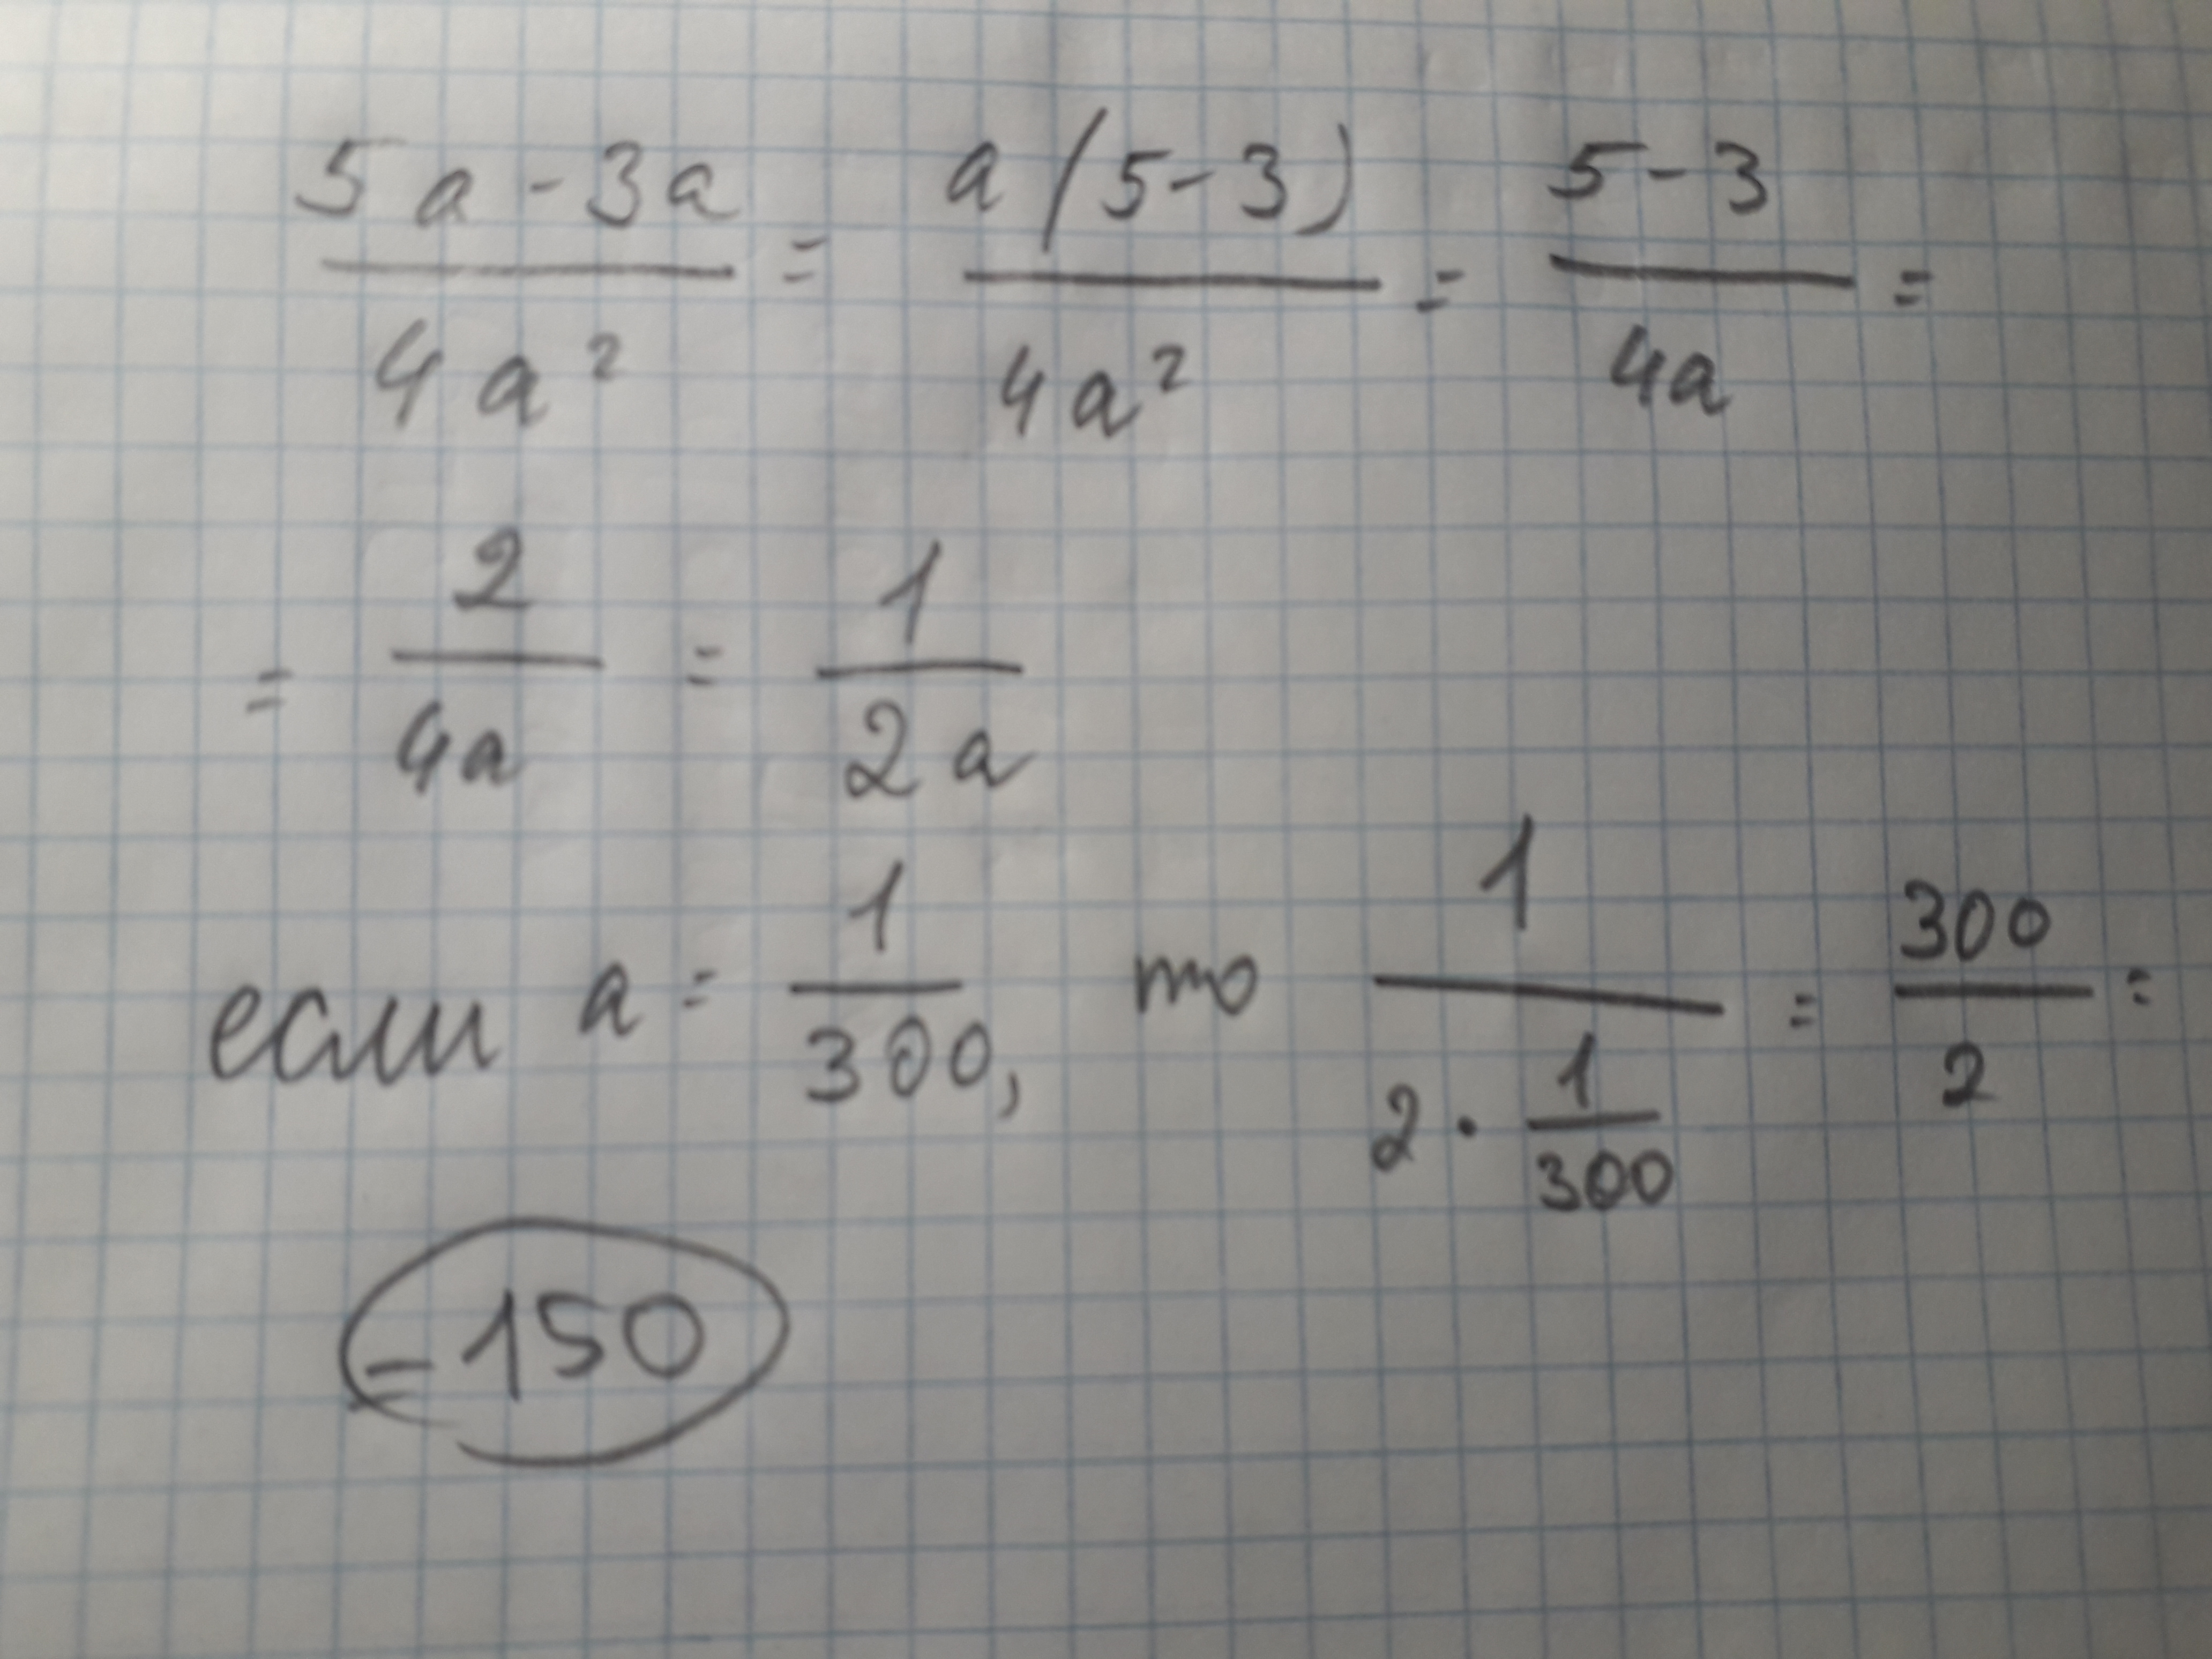 (5a - 3a)/(4a²) = a(5-3)/(4a²) = (5-3)/(4a) =
= 2/(4a) = 1/(2a)
если a = 1/300, то 1/(2 · 1/300) = 300/2 =
= 150